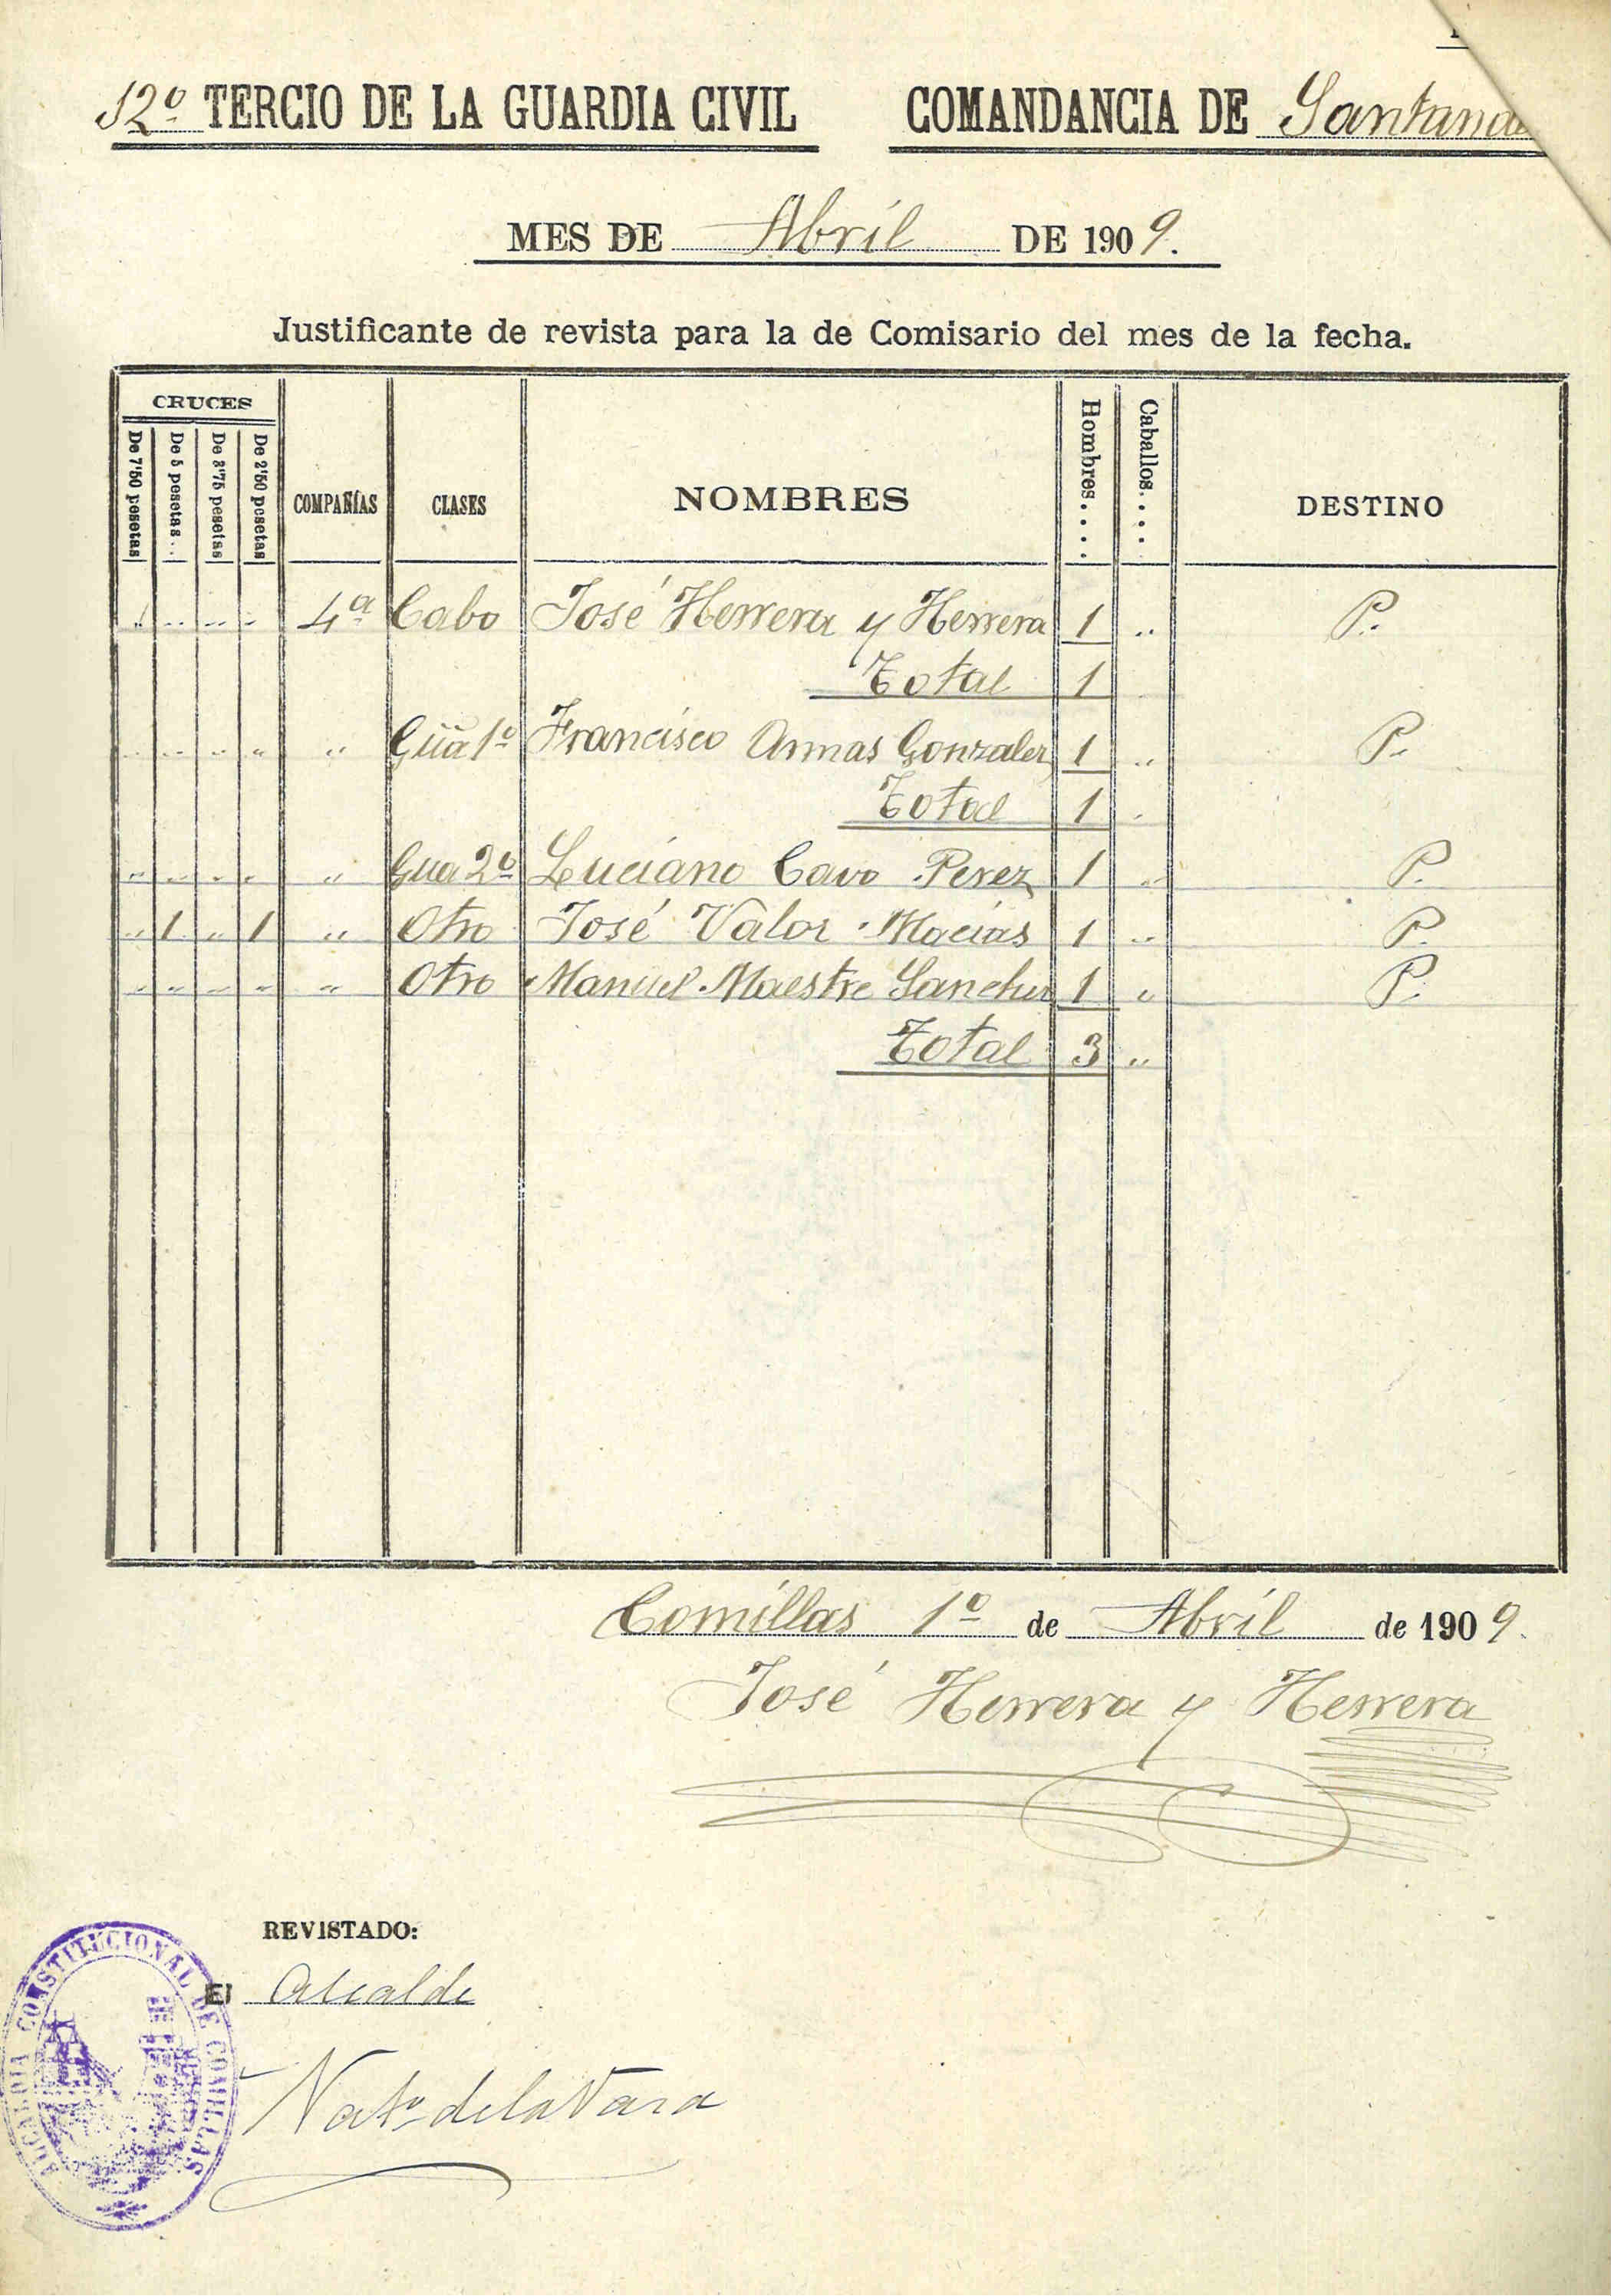 12º TERCIO DE LA GUARDIA CIVIL COMANDANCIA DE Santande
MES DE Abril DE 1909.
Justificante de revista para la de Comisario del mes de la fecha.
CRUCES
De 7'50 pesetas De 5 pesetas.. De 3'75 pesetas De 2'50 pesetas COMPAÑÍAS CLASES NOMBRES Hombres.... Caballos.... DESTINO
" " " " 4ª Cabo José Herrera y Herrera 1 " P.
Total 1
" " " " " Güa 1º Francisco Armas Gonzalez 1 " P.
Total 1 "
" " " " " Gua 2º Luciano Cavo Perez 1 " P.
" 1 " 1 " Otro José Valor Macias 1 " P.
" " " " " Otro Manuel Maestre Sanchez 1 " P.
Total 3 "
Comillas 1º de Abril de 1909.
José Herrera y Herrera
REVISTADO:
El Alcalde
de la Vara
ALCALDIA CONSTITUCIONAL DE COMILLAS